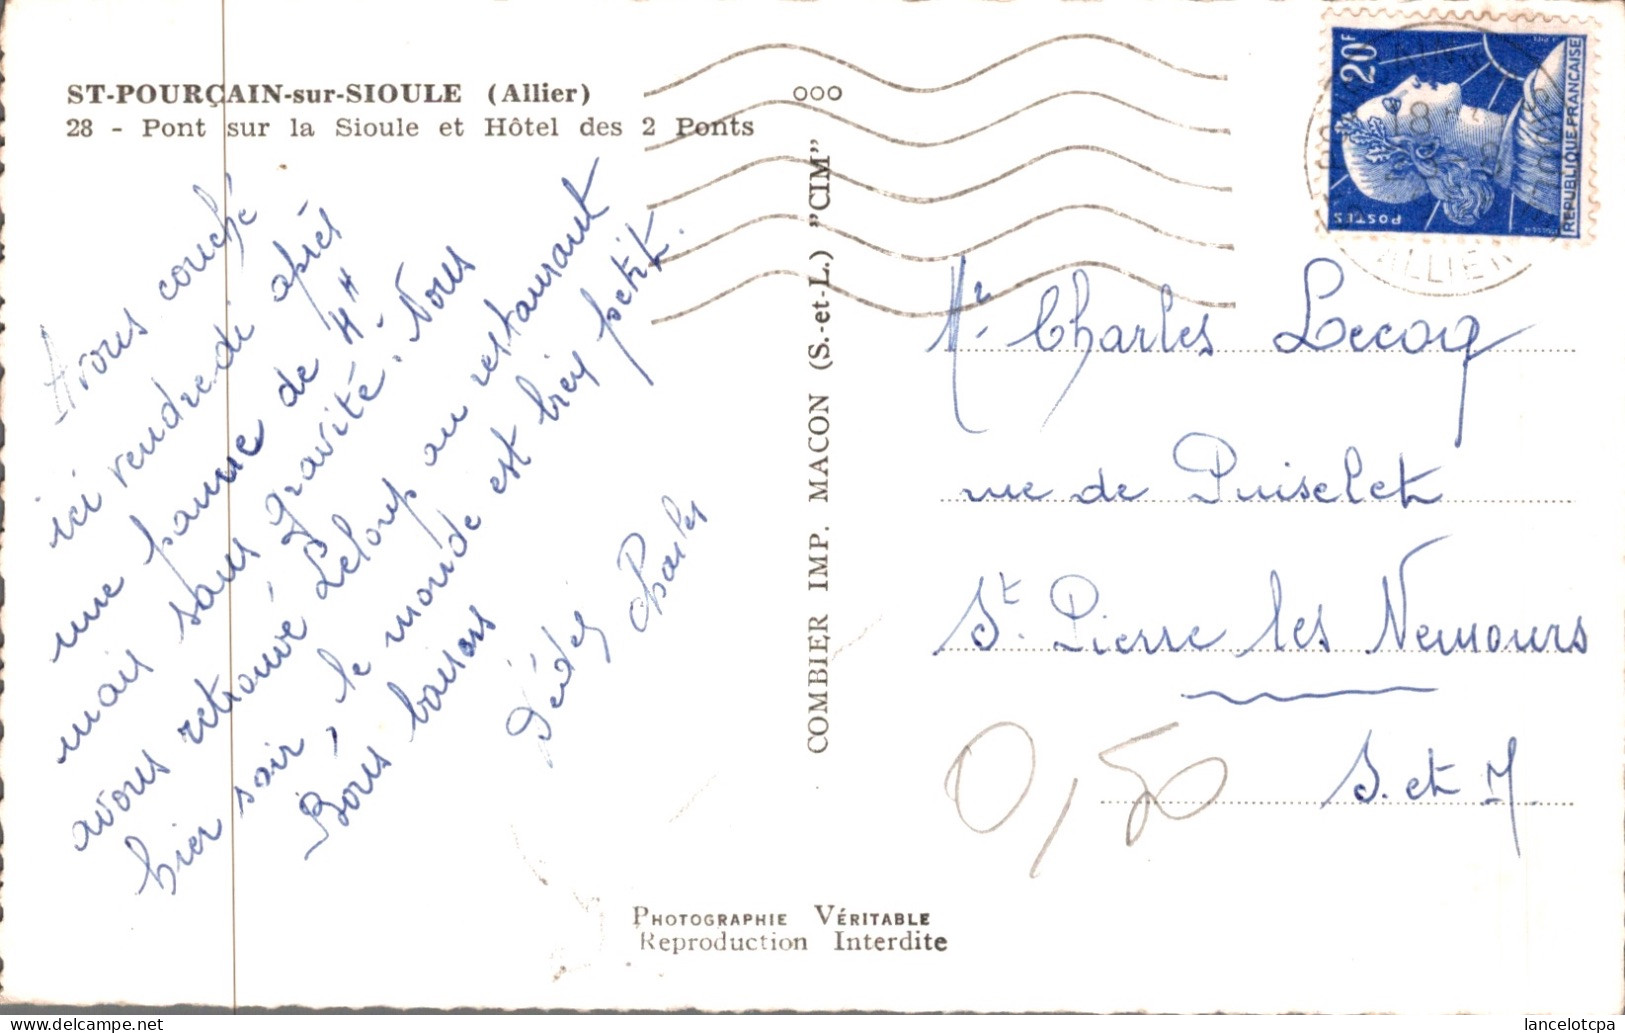 ST-POURÇAIN-sur-SIOULE (Allier)
28 - Pont sur la Sioule et Hôtel des 2 Ponts
Avons couché
ici vendredi après
une panne de 4 H
mais sans gravité. Nous
avons retrouvé Leloup au restaurant
hier soir, le monde est bien petit.
Bons baisers
Dédé Charles
COMBIER IMP. MACON (S.-et-L.) "CIM"
ooo
20F
POSTES
REPUBLIQUE FRANÇAISE
ALLIER
Mr Charles Lecoq
rue de Puiselet
St. Pierre les Nemours
S. et M
0,50
PHOTOGRAPHIE VÉRITABLE
Reproduction Interdite
lancelotcpa